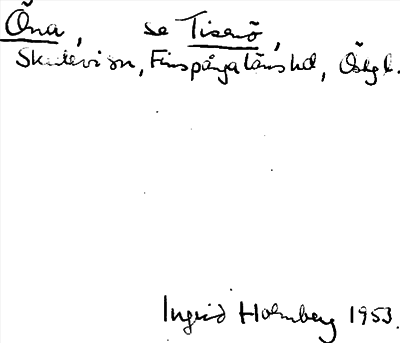 Öna, se Tisenö,
Skedevi sn, Finspångaläns hd, Östgl.
Ingrid Holmberg 1953.